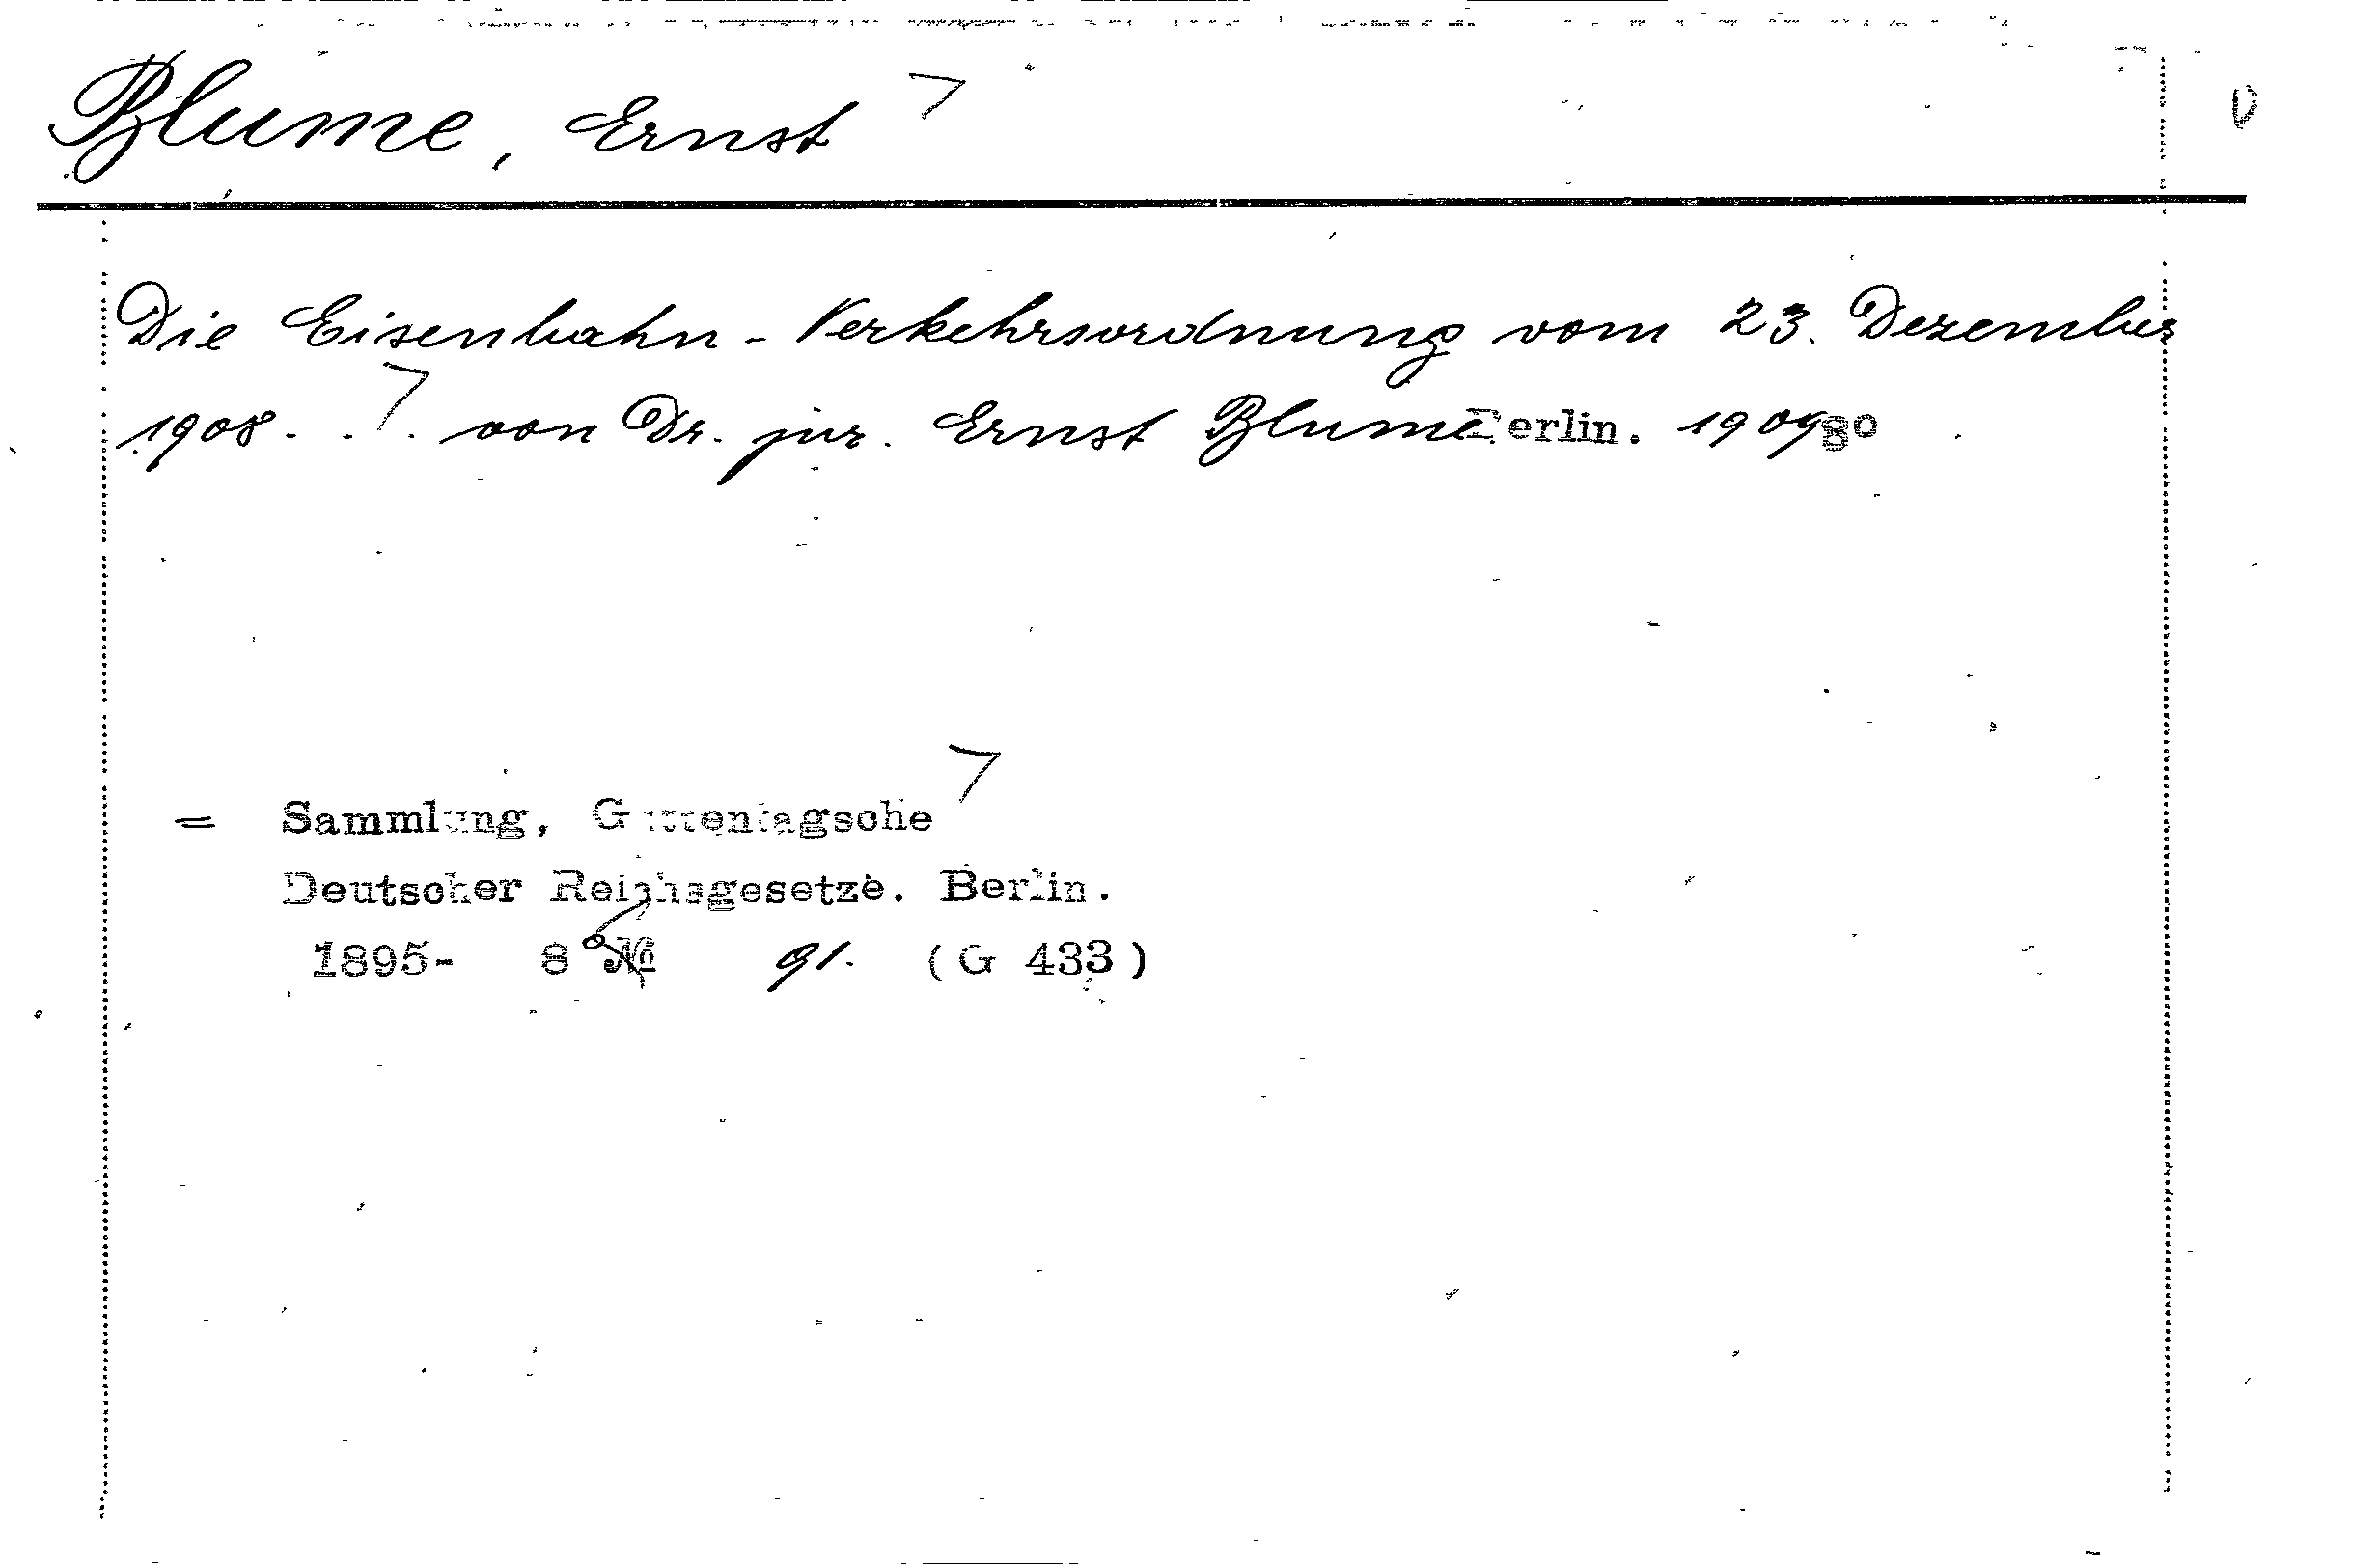 Blume, Ernst
Die Eisenbahn-Verkehrsordnung vom 23. Dezember
1908... von Dr. jur. Ernst Blume Berlin. 1909 8°
= Sammlung, Guttentagsche
Deutscher Reichsgesetze. Berlin.
1895- 8° № 91. (G 433)